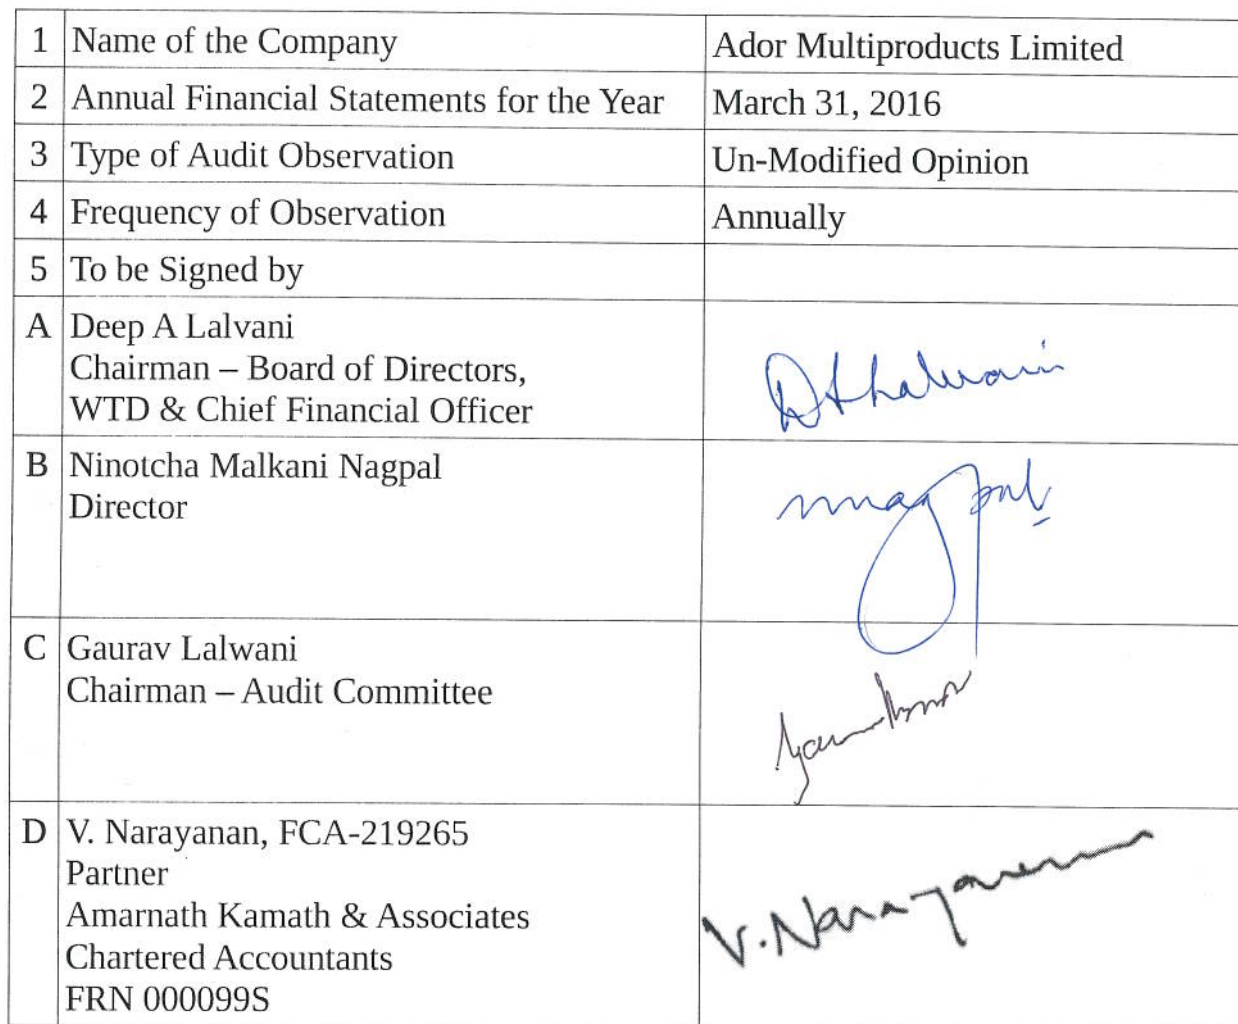 1 Name of the Company Ador Multiproducts Limited
2 Annual Financial Statements for the Year March 31, 2016
3 Type of Audit Observation Un-Modified Opinion
4 Frequency of Observation Annually
5 To be Signed by
A Deep A Lalvani
Chairman – Board of Directors,
WTD & Chief Financial Officer
B Ninotcha Malkani Nagpal
Director
C Gaurav Lalwani
Chairman – Audit Committee
D V. Narayanan, FCA-219265
Partner
Amarnath Kamath & Associates
Chartered Accountants
FRN 000099S
V. Narayanan